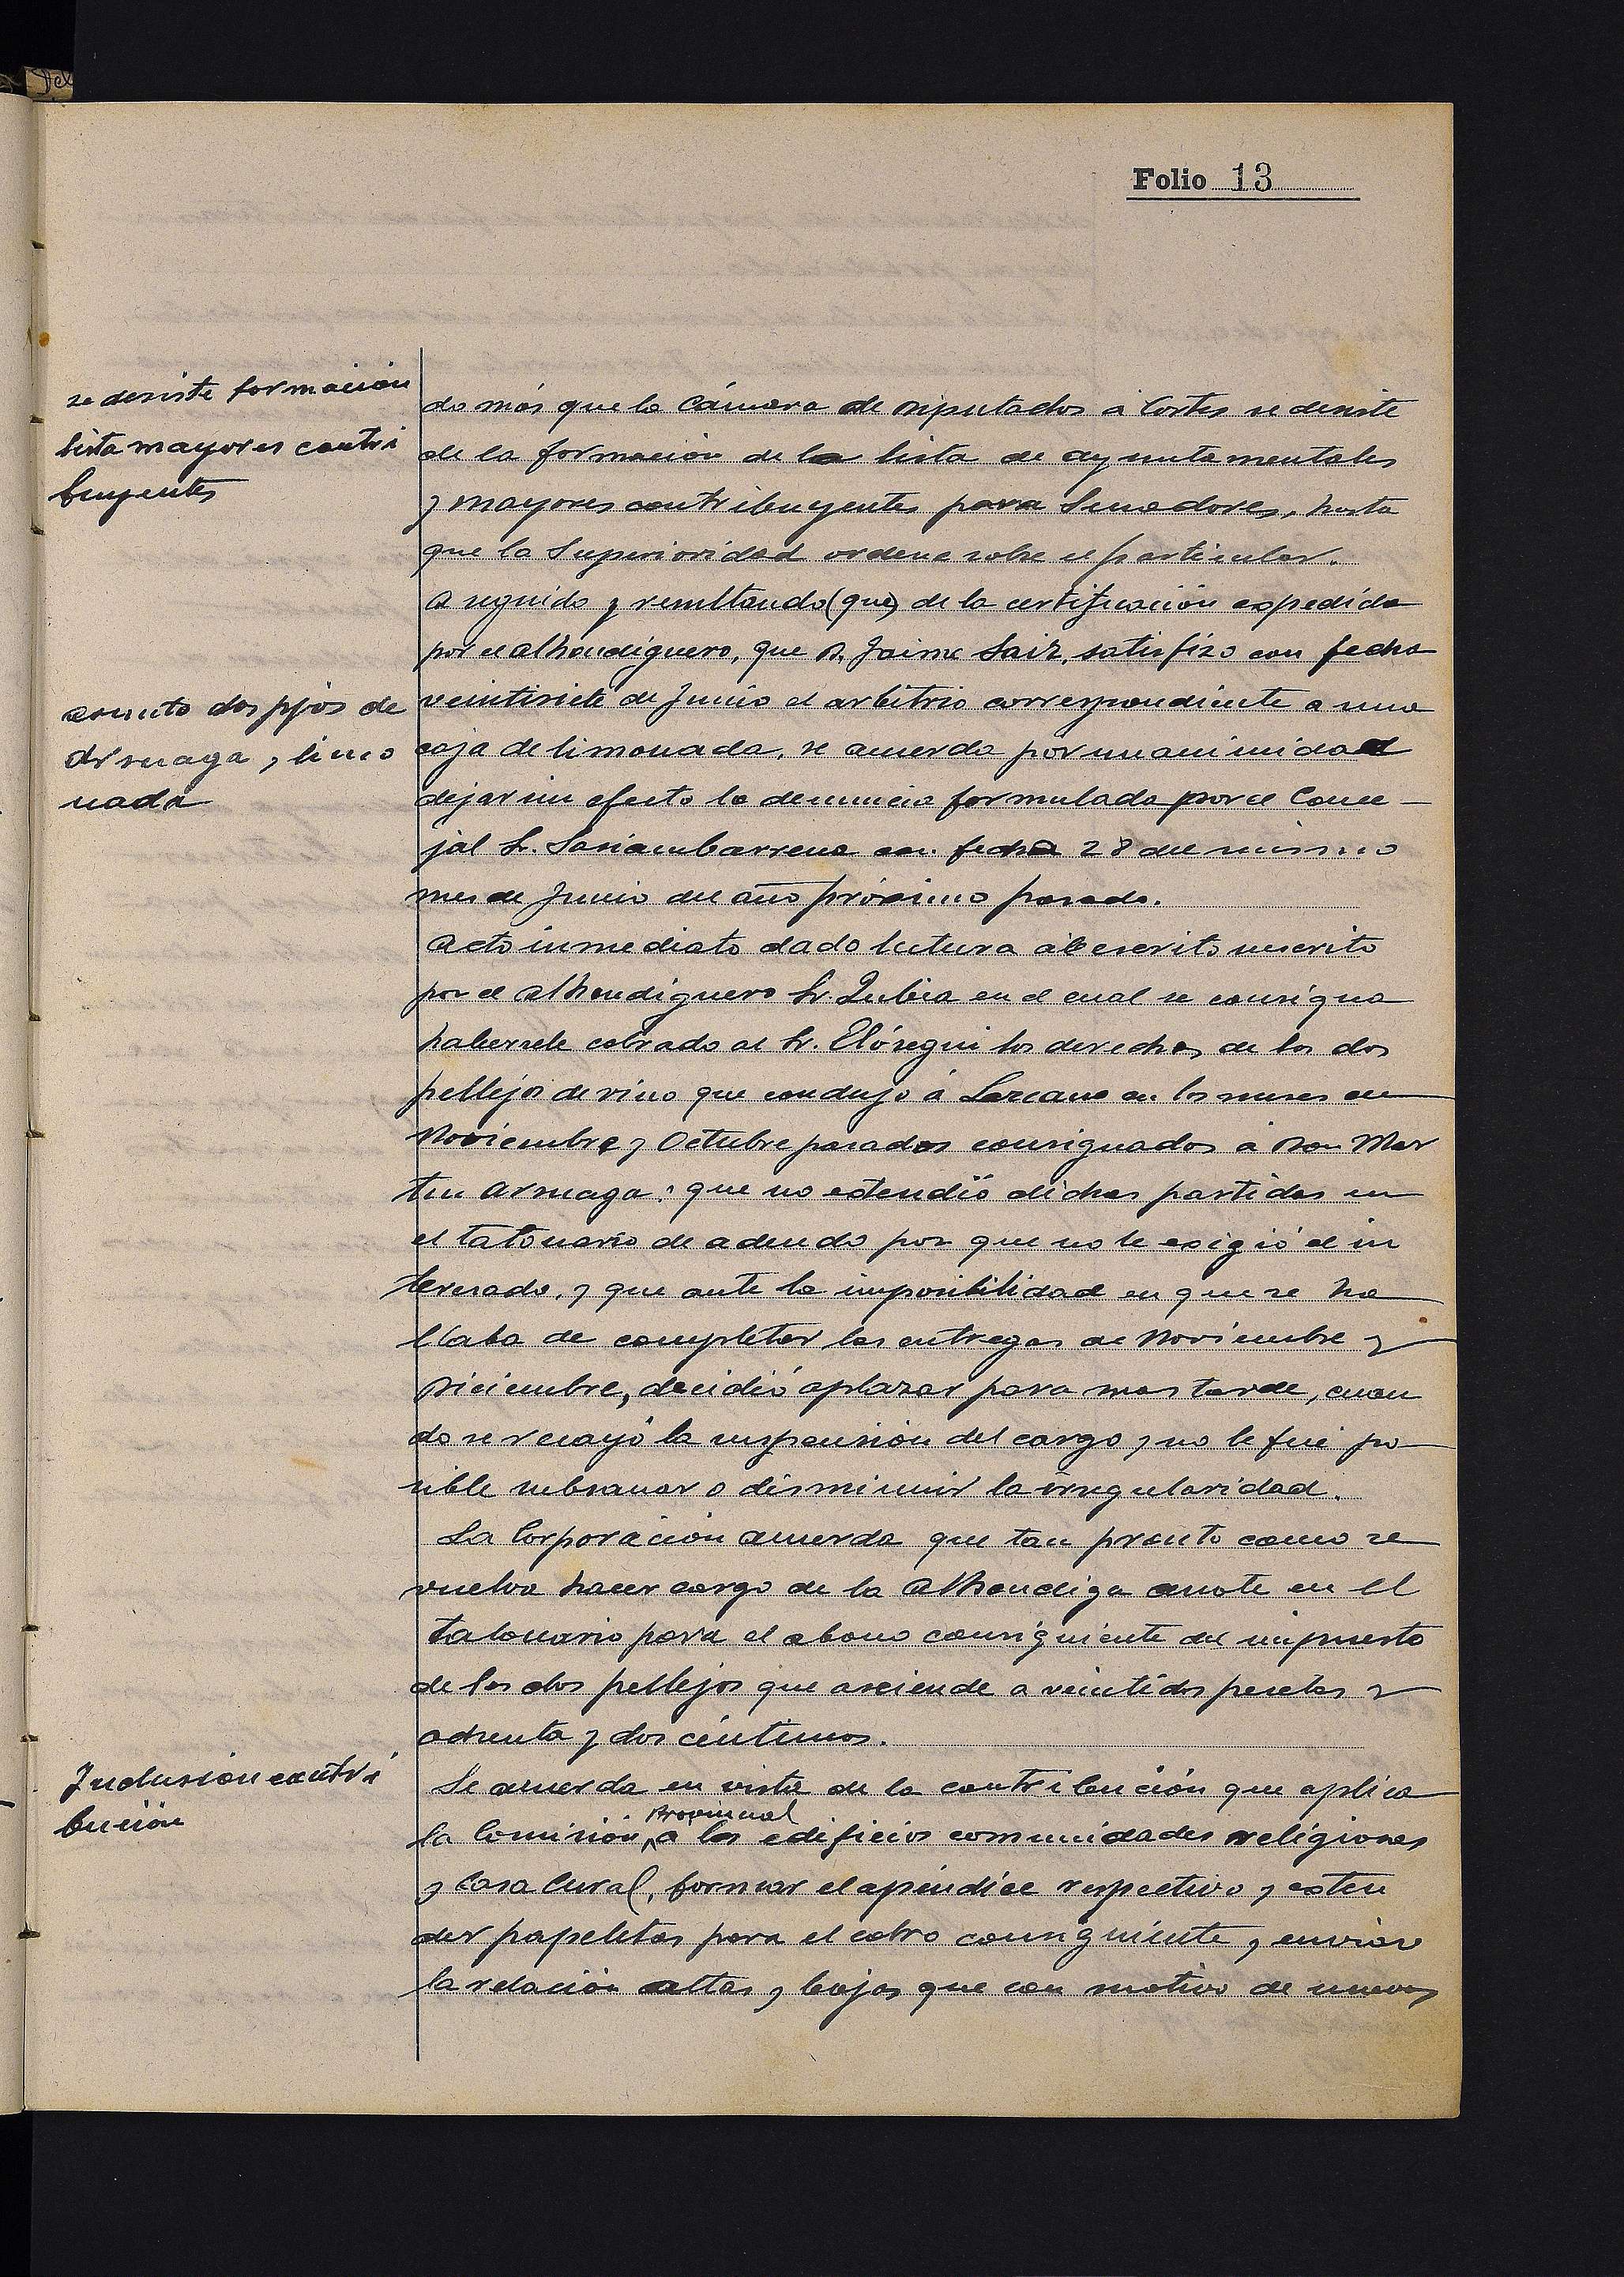 Folio 13
se desiste formación
lista mayores contri
buyentes
do más que la Cámara de Diputados á Cortes se desiste
de la formación de la lista de ayuntamentales
y mayores contribuyentes para Senadores, hasta
que la Superioridad ordene sobre el particular.
A seguido y resultando (que) de la certificación expedida
por el alhondiguero, que D. Jaime Saiz, satisfizo con fecha
asunto dos pjos de
Arsuaga, y limo
nada
veintisiete de Junio el arbitrio correspondiente a una
caja de limonada, se acuerda por unanimidad
dejar sin efecto la denuncia formulada por el Conce-
jal Sr. Sasiambarrena con fecha 28 del mismo
mes de Junio del año próximo pasado.
Acto inmediato dado lectura al escrito suscrito
por el alhondiguero Sr. Zubia en el cual se consigna
habersele cobrado al Sr. Elósegui los derechos de los dos
pellejos de vino que condujo á Lazcano en los meses de
Noviembre y Octubre pasados consignados á Don Mar
tin Arsuaga: que no extendió dichas partidas en
el talonario de adeudo por que no le exigió el in
teresado, y que ante la imposibilidad en que se ha
llaba de completar las entregas de Noviembre y
Diciembre, decidió aplazar para mas tarde, cuan
do se recayó la suspensión del cargo y no le fué po
sible subsanar o disminuir la irregularidad.
La Corporación acuerda que tan pronto como se
vuelva hacer cargo de la Alhondiga anote en el
talonario para el abono consiguiente del impuesto
de los dos pellejos que asciende a veintidos pesetas y
ochenta y dos céntimos.
Inclusión contri
bución
Se acuerda en vista de la contribución que aplica
la Comisión Provincial a los edificios comunidades religiosas
y Casa Cural, formar el apéndice respectivo y exten
der papeletas para el cobro consiguiente, y enviar
la relación altas y bajas que con motivo de nuevos